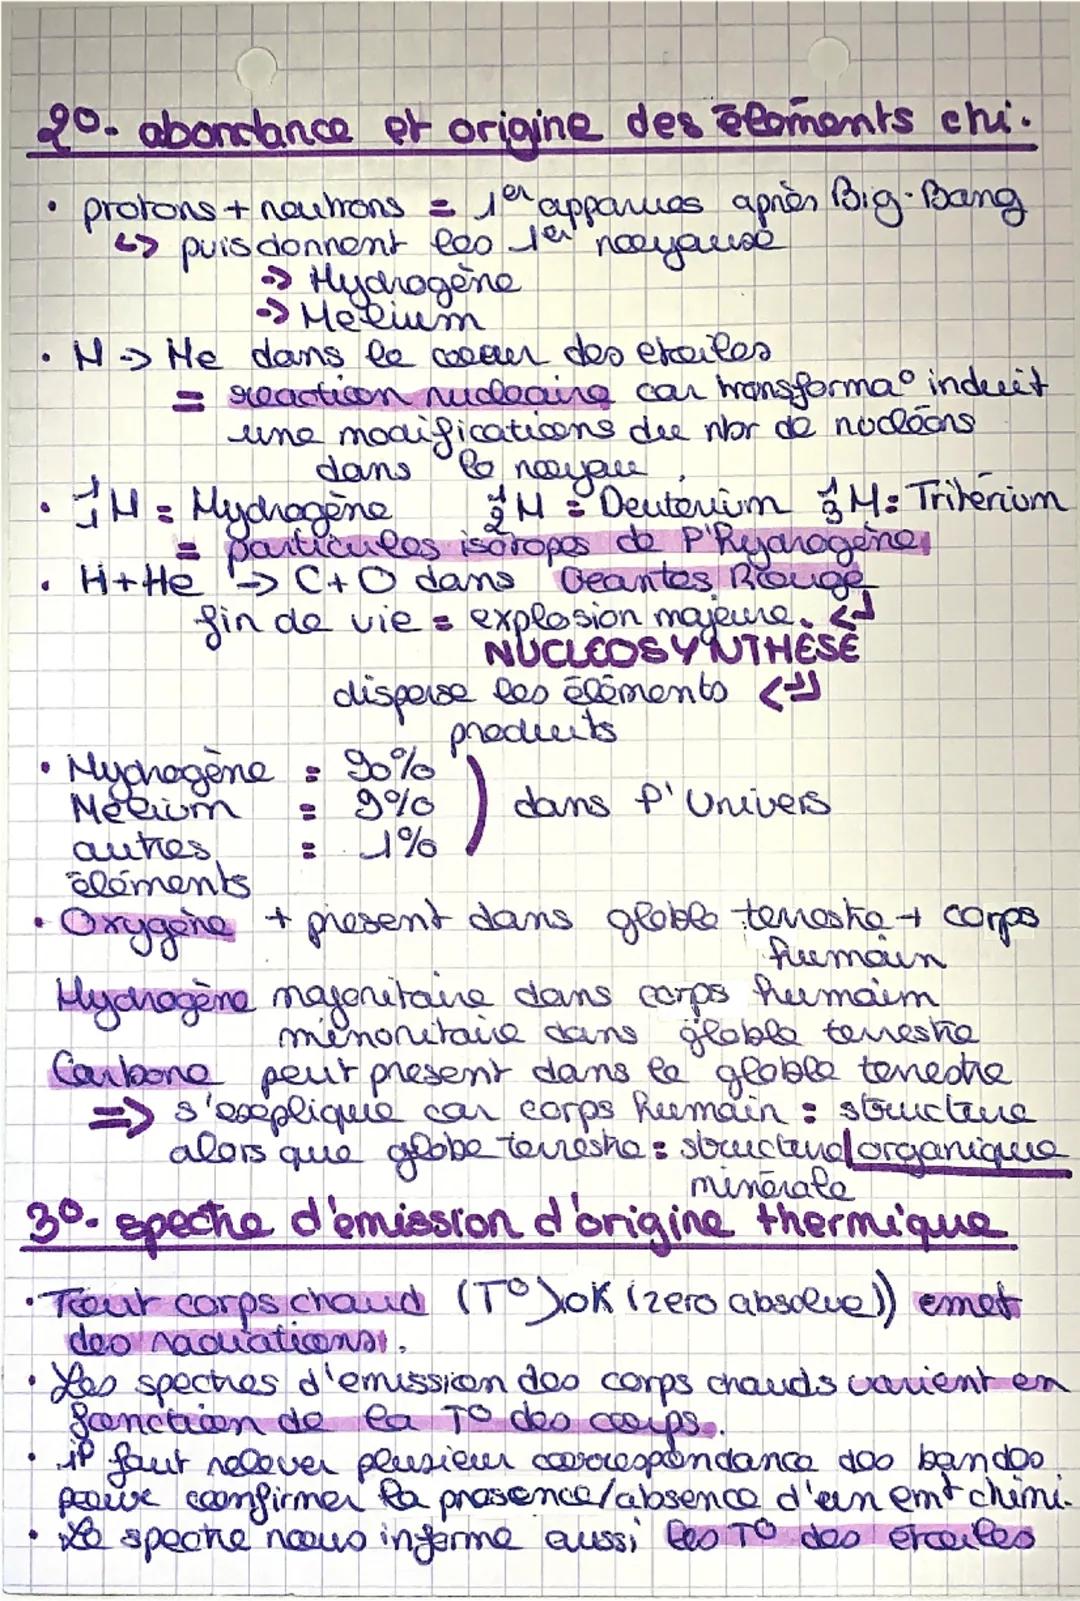 2°- abondance et origine des éléments chi.
• protons + neutrons = 1er apparues après Big-Bang
↳ puis donnent les 1er noyaux
→ Hydrogène
→ Hélium
• H → He dans le coeur des etoiles
= reaction nucleaire car transforma° induit
une modifications du nbr de nucléons
dans le noyau
• ¹₁H = Hydrogène ¹₂H = Deuterium ¹₃H = Tritérium
= particules isotopes de l'Hydrogène
• H + He → C + O dans Geantes Rouge
fin de vie = explosion majeure. ↲
NUCLEOSYNTHÈSE
disperse les éléments ↲
produits
• Hydrogène = 90%
Hélium = 9% ) dans l'Univers
autres = 1%
éléments
• Oxygène + présent dans globle terrestre + corps
humain
Hydrogène majoritaire dans corps humain
minoritaire dans globle terrestre
Carbone peut present dans le globle terrestre
=> s'explique car corps humain = structure
alors que globe terrestre = structure | organique
minérale
3°- spectre d'émission d'origine thermique
• Tout corps chaud (T° > 0K (zero absolue)) emet
des radiations.
• Les spectres d'emission des corps chauds varient en
fonction de la T° des corps.
• il faut relever plusieur correspondance des bandes
pour comfirmer la presence/absence d'un emt chimi.
• Le spectre nous informe aussi les T° des etoiles